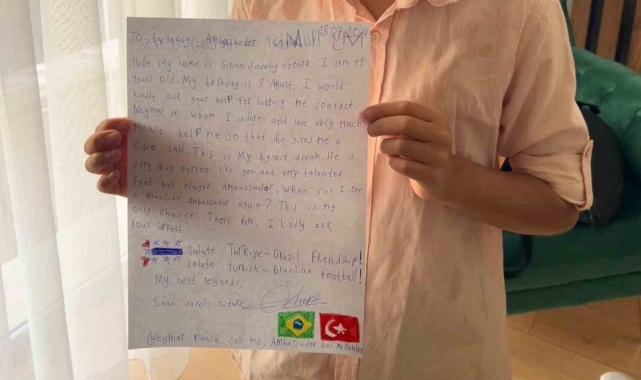 To: Excellency Ambassador
18.07.2024
Hello. My Name is Sinan Savely Öztürk. I am 11
Years old. My birthday is 8 Agust. I would
kindly ask your help for letting me contact
Neymar Jr whom I adore and love very much
Please help me so that he gives me a
Video call. This is My bigest dream. He is
very Nice Person like you and very talented
Foot ball player. Ambassador, When can I see
a Brasilian Ambassador again? This is my
only chance. There fore, I kindly ask
your support.
Salute Türkiye-Brazil Friendship!
Salute Turkish-Brazilian Football!
My best regards,
Sinan Savely Öztürk
(Neymar Please call Me, Ambassador has My